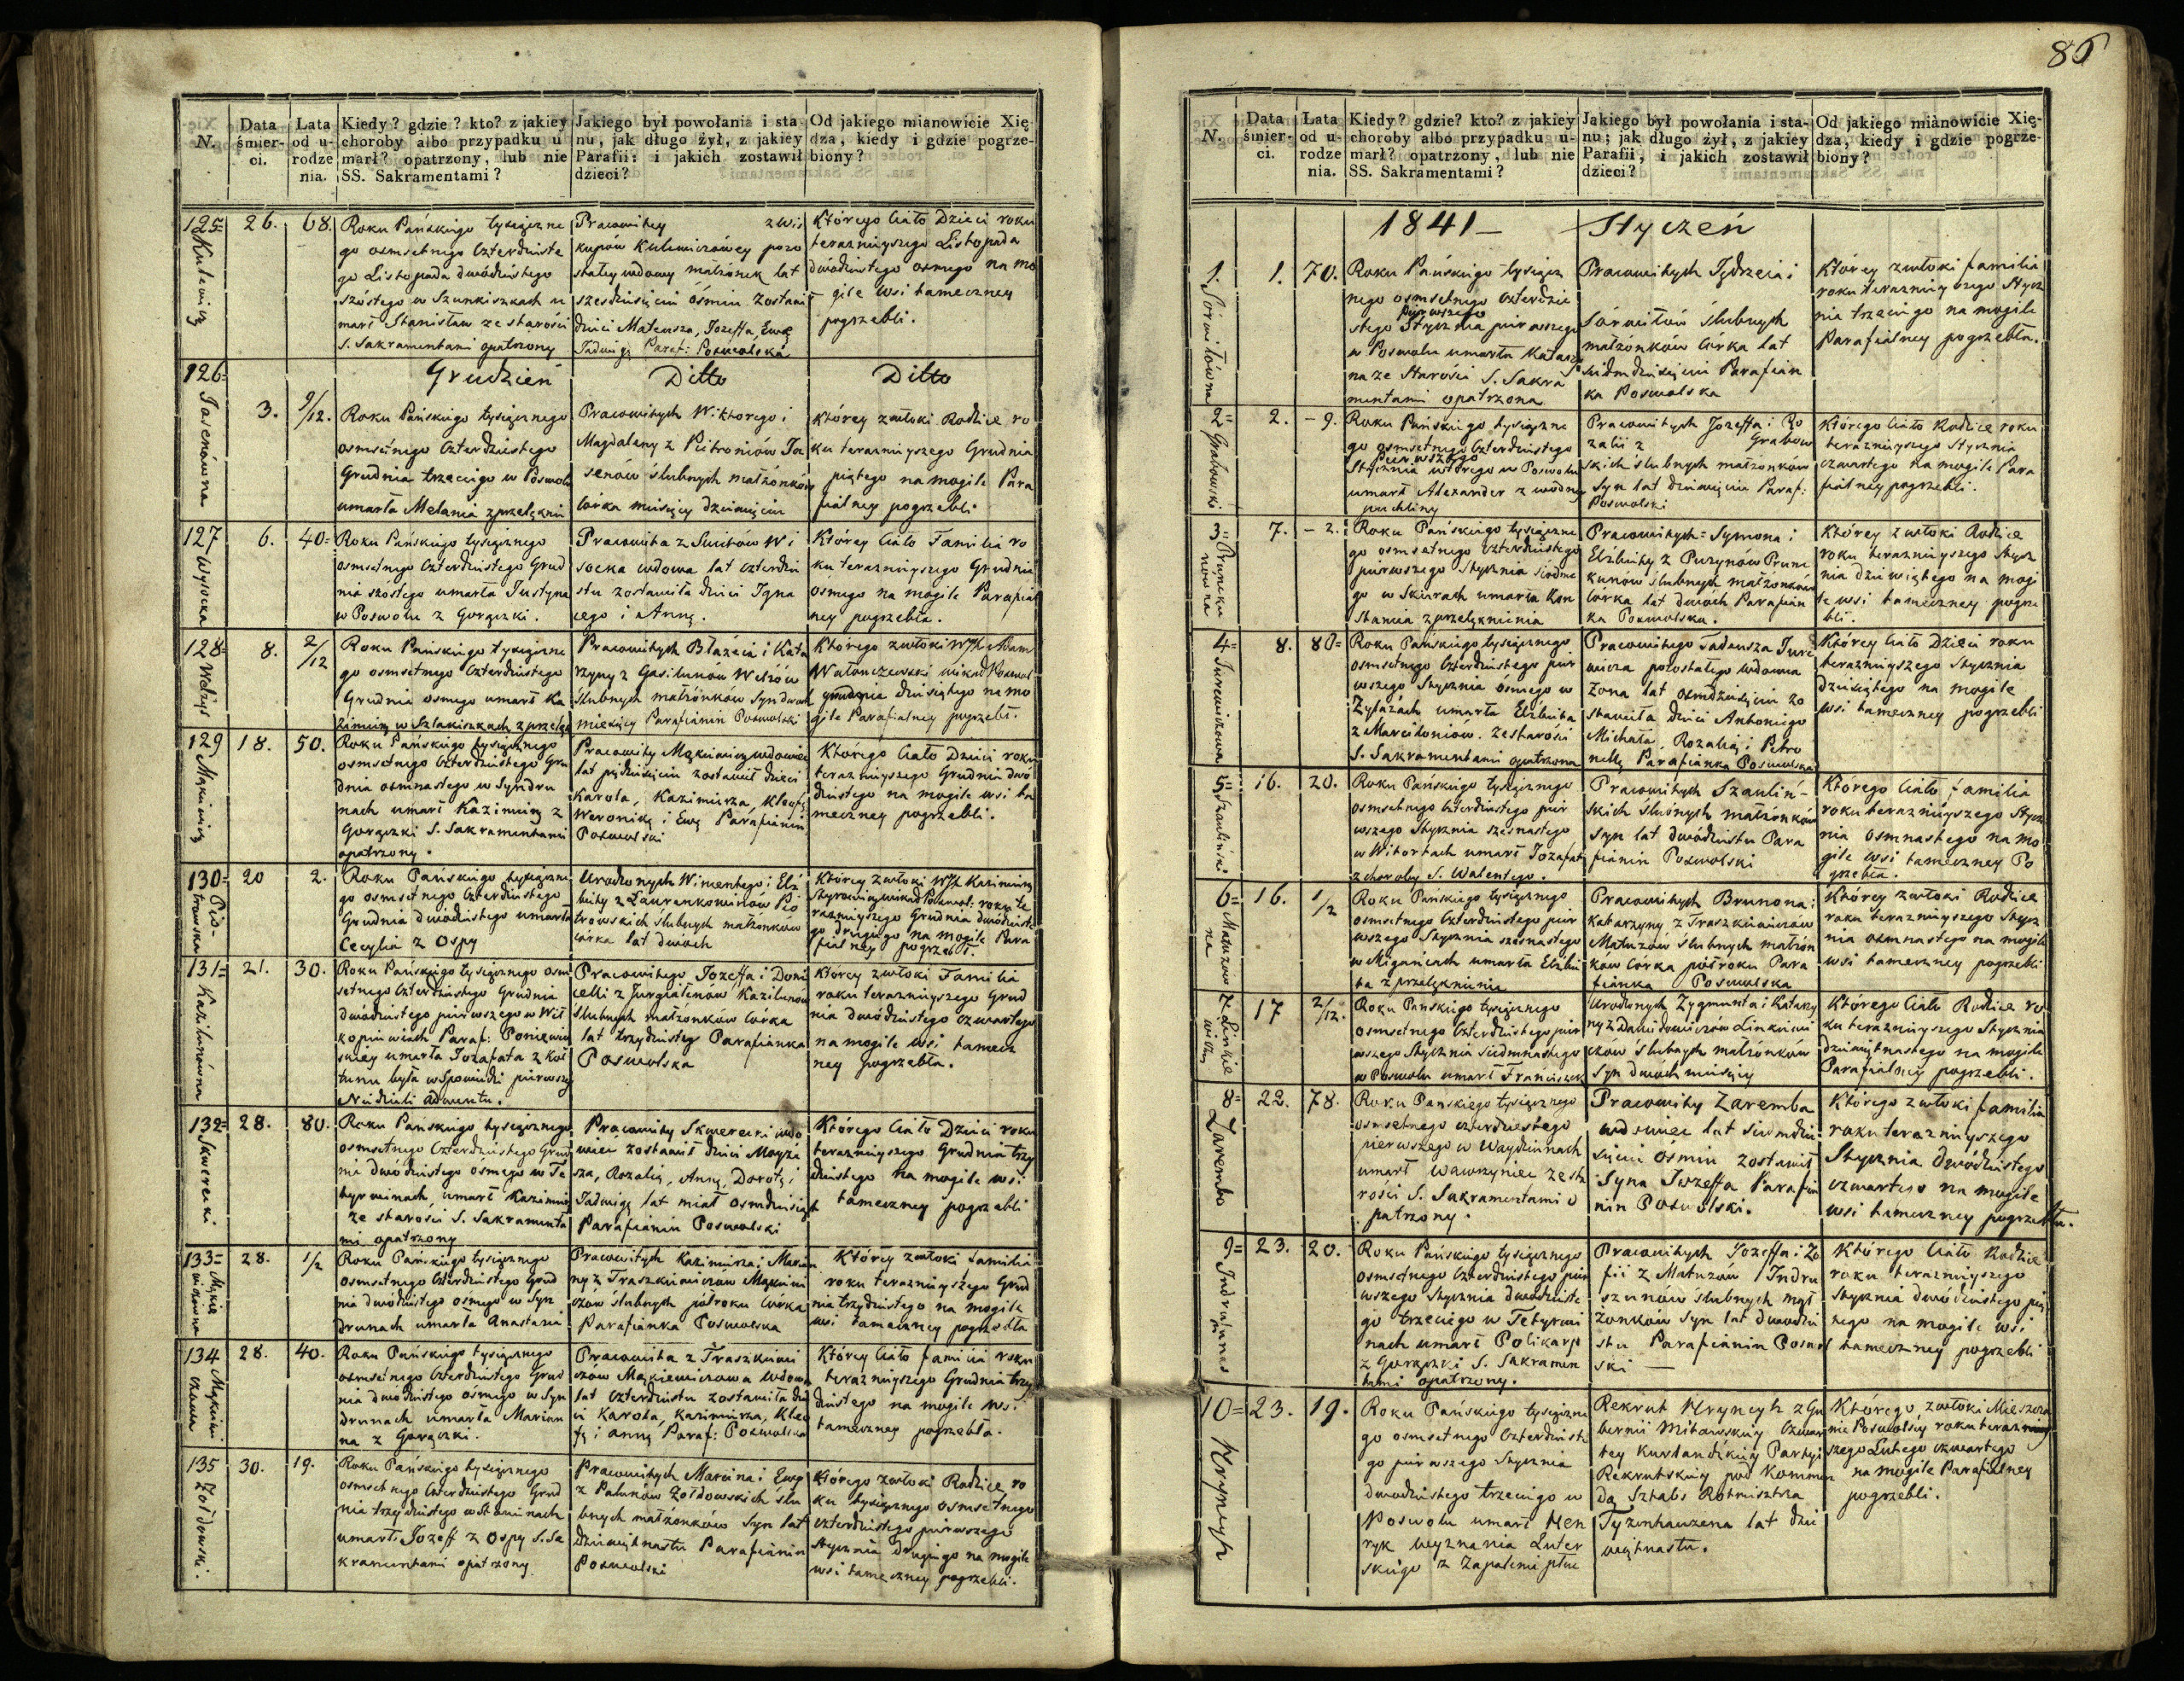 86
N.
Data śmierci.
Lata od urodzenia.
Kiedy? gdzie? kto? z jakiey choroby albo przypadku umarł? opatrzony, lub nie SS. Sakramentami?
Jakiego był powołania i stanu, jak długo żył, z jakiey Parafii: i jakich zostawił dzieci?
Od jakiego mianowicie Xiędza, kiedy i gdzie pogrzebiony?
125=
Kulewicz
26.
68.
Roku Pańskiego tysiączne
go osmsetnego czterdzieste
go Listopada dwódziestego
szóstego w Szunkiszkach u
marł Stanisław ze starości
S. Sakramentami opatrzony
Pracowitey
kupów Kulewiczówey pozo
stałey wdowy małżonek lat
szesdziesięciu ósmiu zostawił
dzieci Mateusza, Jozeffa, Ewę
Jadwigę Paraf: Poswolska
Którego Ciało Dzieci roku
teraznieyszego Listopada
dwódziestego osmego na mo
gile wsi tameczney
pogrzebli.
126=
Jasenówna
Grudzień
Ditto
Ditto
3.
9/12.
Roku Pańskiego tysiącznego
osmsetnego czterdziestego
Grudnia trzeciego w Poswolu
umarła Melania z przelęknie
Pracowitych Wiktorego i
Magdaleny z Pietroniów Ja
senów ślubnych małżonków
córka miesięcy dziewięciu
Którey zwłoki Rodzice ro
ku teraznieyszego Grudnia
piątego na mogile Para
fialney pogrzebli
127
Wysocka
6.
40=
Roku Pańskiego tysiącznego
osmsetnego czterdziestego Grud
nia szóstego umarła Justyna
w Poswolu z Gorączki.
Pracowita z Switów Wi
socka wdowa lat czterdzie
stu zostawiła dzieci Igna
cego i Annę.
Którey Ciało Familia ro
ku teraznieyszego Grudnia
ósmego na mogile Parafial
ney pogrzebła.
128=
Welżys
8.
2/12
Roku Pańskiego tysiączne
go osmsetnego czterdziestego
Grudnia osmego umarł Ka
zimierz w Szlakiszkach z przelęk
Pracowitych Błażeia i Kata
rzyny z Gasilunów Welżów
ślubnych małżonków Syn dwóch
miesięcy Parafianin Poswolski
Którego zwłoki WJX Adam
Wołonczewski wikary Poswol
grudnia dziesiątego na mo
gile Parafialney pogrzebł.
129
Mąkiewicz
18.
50.
Roku Pańskiego tysiącznego
osmsetnego czterdziestego Gru
dnia osmnastego w Syndru
nach umarł Kazimierz z
Gorączki S. Sakramentami
opatrzony.
Pracowity Mąkiewicz wdowiec
lat pięćdziesięciu zostawił dzieci
Karola, Kazimierza, Kleofę
Weronikę i Ewę Parafianin
Poswolski
Którego Ciało Dzieci roku
terazniejszego Grudnia dwó
dziestego na mogile wsi ta
meczney pogrzebli.
130=
Pio-
trowska
20
2.
Roku Pańskiego tysiączne
go osmsetnego czterdziestego
Grudnia dwódziestego umarła
Cecylia z Ospy
Urodzonych Wincentego i Elż
biety z Ławrenkowiczów Pio
trowskich ślubnych małżonków
córka lat dwóch
Którey Zwłoki WJX Kazimierz
roku te
raznieyszego Grudnia dwódzieste
go drugiego na mogile Para
fialney pogrzebł.
131=
Kazilunówna
21.
30.
Roku Pańskiego tysiącznego osm
setnego czterdziestego Grudnia
dwódziestego pierwszego w Wił
kopiewiach Paraf: Poniewie
skiey umarła Jozafata z koł
tunu była w Spowiedzi pierwszey
Niedzieli Adwentu.
Pracowitego Jozeffa i Domi
celli z Jurgiałenów Kazilunów
ślubnych małżonków Córka
lat trzydziestu Parafianka
Poswolska
Którey zwłoki Familia
roku terazniejszego Grud
nia dwódziestego czwartego
na mogile wsi tamecz
ney pogrzebła.
132=
Skwerecki
28.
80.
Roku Pańskiego tysiącznego
osmsetnego czterdziestego Grud
nia dwódziestego ósmego w Te
tyrwinach umarł Kazimierz
ze starości S. Sakramenta
mi opatrzony
Pracowity Skwerecki wdo
wiec zostawił dzieci Moyże
sza, Rozalię, Annę, Dorotę i
Jadwigę lat miał osmdziesiąt
Parafianin Poswolski
Którego Ciało Dzieci roku
terazniejszego Grudnia trzy
dziestego na mogile wsi
tameczney pogrzebli
133=
Mąkie
wiczówna
28.
1/2
Roku Pańskiego tysiącznego
osmsetnego czterdziestego Grud
nia dwódziestego osmego w Syn
drunach umarła Anastazia
Pracowitych Kazimierza i Marian
ny z Traszkiewiczów Mąkiewi
czów ślubnych półroku Córka
Parafianka Poswolska
Którey zwłoki Familia
roku terazniejszego Grud
nia trzydziestego na mogile
wsi tameczney pogrzebła
134
Mąkiewi
czowa
28.
40.
Roku Pańskiego tysiącznego
osmsetnego czterdziestego Grud
nia dwódziestego osmego w Syn
drunach umarła Marian
na z Gorączki.
Pracowita z Traszkiewi
czów Mąkiewiczowa wdowa
lat czterdziestu zostawiła dzie
ci Karola, Kazimierza, Kleo
fę i Annę Paraf: Poswolska
Którey Ciało familia roku
terazniejszego Grudnia trzy
dziestego na mogile wsi
tameczney pogrzebła.
135
Zołdowski.
30.
19.
Roku Pańskiego tysiącznego
osmsetnego czterdziestego Grud
nia trzydziestego w Stowinach
umarł Jozeff z Ospy S. Sa
kramentami opatrzony
Pracowitych Marcina i Ewy
z Palunów Zołdowskich ślu
bnych małżonków Syn lat
dziewiętnastu Parafianin
Poswolski
Którego zwłoki Rodzice ro
ku tysiącznego osmsetnego
czterdziestego pierwszego
Stycznia drugiego na mogile
wsi tameczney pogrzebli.
N.
Data śmierci.
Lata od urodzenia.
Kiedy? gdzie? kto? z jakiey choroby albo przypadku umarł? opatrzony, lub nie SS. Sakramentami?
Jakiego był powołania i stanu; jak długo żył, z jakiey Parafii, i jakich zostawił dzieci?
Od jakiego mianowicie Xiędza, kiedy i gdzie pogrzebiony?
1841 — Styczeń
1.
Sórwiłówna
1.
70.
Roku Pańskiego tysiącz
nego osmsetnego czterdzie
pierwszego
stego Stycznia pierwszego
w Poswolu umarła Katarzy
na ze Starości S. Sakra
mentami opatrzona
Pracowitych Jędrzeia i
Sórwiłów ślubnych
małżonków Córka lat
siedmdziesięciu Parafian
ka Poswolska
Którey zwłoki familia
roku terazniejszego Stycz
nia trzeciego na mogile
Parafialney pogrzebła.
2=
Grabowski
2.
– 9.
Roku Pańskiego tysiączne
go osmsetnego czterdziestego
pierwszego
Stycznia wtórego w Poswolu
umarł Alexander z wodney
puchliny
Pracowitych Jozeffa i Ro
zalii z Grabow
skich ślubnych małżonków
Syn lat dziewięciu Paraf:
Poswolski
Którego Ciało Rodzice roku
terazniejszego Stycznia
czwartego na mogile Para
fialney pogrzebli.
3=
Pruncku
nowna
7.
– 2.
Roku Pańskiego tysiączne
go osmsetnego czterdziestego
pierwszego Stycznia siódme
go w Skurach umarła Kon
stancia z przelęknienia
Pracowitych Symona i
Elżbiety z Puzynów Prunc
kunów ślubnych małżonków
córka lat dwóch Parafian
ka Poswolska.
Którey zwłoki Rodzice
roku terazniejszego Stycz
nia dziewiątego na mogi
le wsi tameczney pogrze
bli.
4=
Jurewiczowa
8.
80=
Roku Pańskiego tysiącznego
osmsetnego czterdziestego pier
wszego Stycznia ósmego w
Zyłażach umarła Elżbieta
z Marciłoniów. ze starości
S. Sakramentami opatrzona
Pracowitego Tadeusza Jure
wicza pozostałego wdowca
Zona lat osmdziesięciu zo
stawiła dzieci Antoniego
Michała, Rozalię i Petro
nellę Parafianka Poswolska
Którey Ciało Dzieci roku
terazniejszego Stycznia
dziesiątego na mogile
wsi tameczney pogrzebli
5=
Szauliński
16.
20.
Roku Pańskiego tysiącznego
osmsetnego czterdziestego pier
wszego Stycznia szesnastego
w Witortach umarł Jozafat
z choroby S. Walentego.
Pracowitych Szauliń-
skich ślubnych małżonków
Syn lat dwódziestu Para
fianin Poswolski
Którego Ciało familia
roku terazniejszego Stycz
nia osmnastego na mo
gile wsi tameczney po
grzebła.
6=
Matuzów
na
16.
1/2
Roku Pańskiego tysiącznego
osmsetnego czterdziestego pier
wszego Stycznia szesnastego
w Migańcach umarła Elżbie
ta z przelęknienia
Pracowitych Brunona i
Katarzyny z Traszkiewiczów
Matuzów ślubnych małżon
ków Córka półroku Para
fianka Poswolska
Którey zwłoki Rodzice
roku terazniejszego Stycz
nia osmnastego na mogile
wsi tameczney pogrzebli
7.
Linkie
wicz
17
2/12.
Roku Pańskiego tysiącznego
osmsetnego czterdziestego pier
wszego Stycznia siedmnastego
w Poswolu umarł Franciszek
Urodzonych Zygmunta i Katarzy
ny z Dawidowiczów Linkiewi
czów ślubnych małżonków
Syn dwóch miesięcy
Którego Ciało Rodzice ro
ku terazniejszego Stycznia
dziewiętnastego na mogile
Parafialney pogrzebli.
8=
Zaremba
22.
78.
Roku Pańskiego tysiącznego
osmsetnego czterdziestego
pierwszego w Waydunach
umarł Wawrzyniec ze sta
rości S. Sakramentami o
patrzony.
Pracowity Zaremba
wdowiec lat siedmdzie
sięciu ósmiu zostawił
Syna Jozeffa Parafia
nin Poswolski.
Którego zwłoki familia
roku terazniejszego
Stycznia dwódziestego
czwartego na mogile
wsi tameczney pogrzebła.
9=
23.
20.
Roku Pańskiego tysiącznego
osmsetnego czterdziestego pier
wszego Stycznia dwódzieste
go trzeciego w Tetyrwi
nach umarł Polikarp
z Gorączki S. Sakramen
tami opatrzony.
Pracowitych Jozeffa i Zo
fii z Matuzów Indru
szunów ślubnych mał
żonków Syn lat dwodzie
stu Parafianin Poswol
ski —
Którego Ciało Rodzice
roku terazniejszego
Stycznia dwódziestego pią
tego na mogile wsi
tameczney pogrzebli
10=
Hryneyk
23.
19.
Roku Pańskiego tysiączne
go osmsetnego czterdzieste
go pierwszego Stycznia
dwodziestego trzeciego w
Poswolu umarł Hen
ryk wyznania Luter
skiego z Zapaleni płuc
Rekrut Hryneyk z Gu
bernii Mitawskiey Czwar
tey Kurlandzkiey Partyi
Rekrutskiey pod Kommen
dą Sztabs Rotmistrza
Tyzenhauzena lat dzie
więtnastu.
Którego zwłoki Mieszcza
nie Poswolscy roku terazniey
szego Lutego czwartego
na mogile Parafialney
pogrzebli.